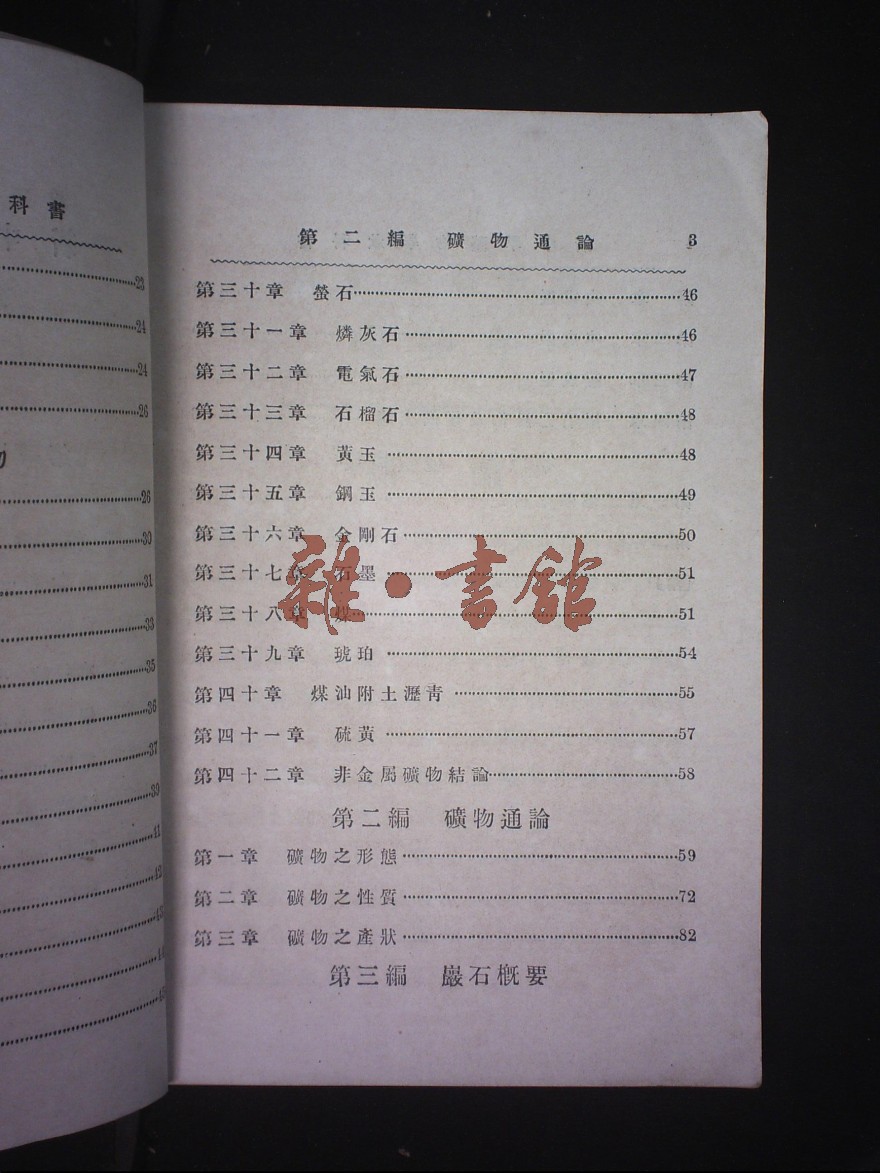 科書
23
24
24
26
26
30
31
33
35
36
37
39
41
42
43
14
第二編 礦物通論 3
第三十章 螢石 46
第三十一章 燐灰石 46
第三十二章 電氣石 47
第三十三章 石榴石 48
第三十四章 黃玉 48
第三十五章 鋼玉 49
第三十六章 金剛石 50
第三十七章 石墨 51
第三十八章 煤 51
第三十九章 琥珀 54
第四十章 煤油附土瀝青 55
第四十一章 硫黃 57
第四十二章 非金屬礦物結論 58
第二編 礦物通論
第一章 礦物之形態 59
第二章 礦物之性質 72
第三章 礦物之產狀 82
第三編 巖石概要
雜·書館